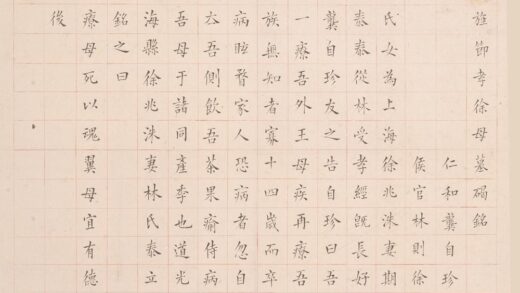 旌節孝徐母墓碣銘
仁和龔自珍
侯官林則徐
氏女為上海徐兆洙妻期
泰泰從林受孝經既長好
龔自珍友之告自珍曰吾
一療吾外王母疾再療吾
族無知者寡十四歲而卒
病眩瞀家人恐病者忽自
厺吾側飲吾茶果瘉侍病
吾母于諸同產季也道光
海縣徐兆洙妻林氏泰立
銘之曰
療母死以魂翼母宜有德
後